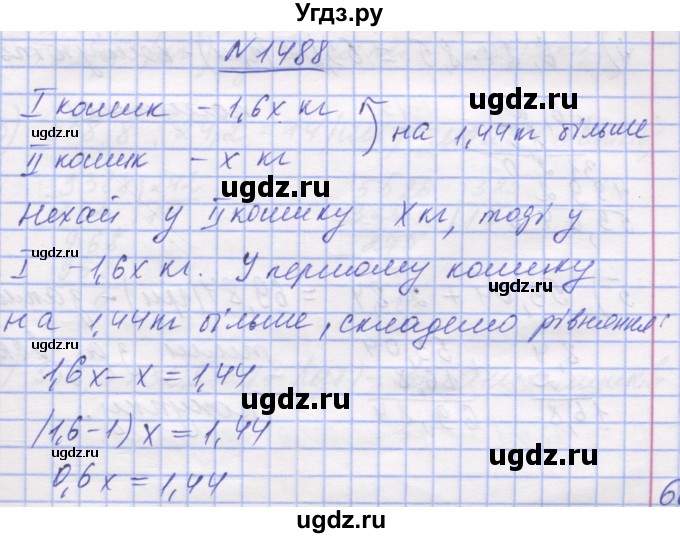 Угдз.ру
N 1488
I кошик – 1,6x кг
на 1,44кг більше
II кошик – x кг
Нехай у II кошику x кг, тоді у
I – 1,6x кг. У першому кошику
на 1,44кг більше, складемо рівняння:
1,6x – x = 1,44
(1,6-1)x = 1,44
0,6x = 1,44
ugdz.ru
ugdz.ru
ugdz.ru
ugdz.ru
ugdz.ru
ugdz.ru
ugdz.ru
ugdz.ru
ugdz.ru
ugdz.ru